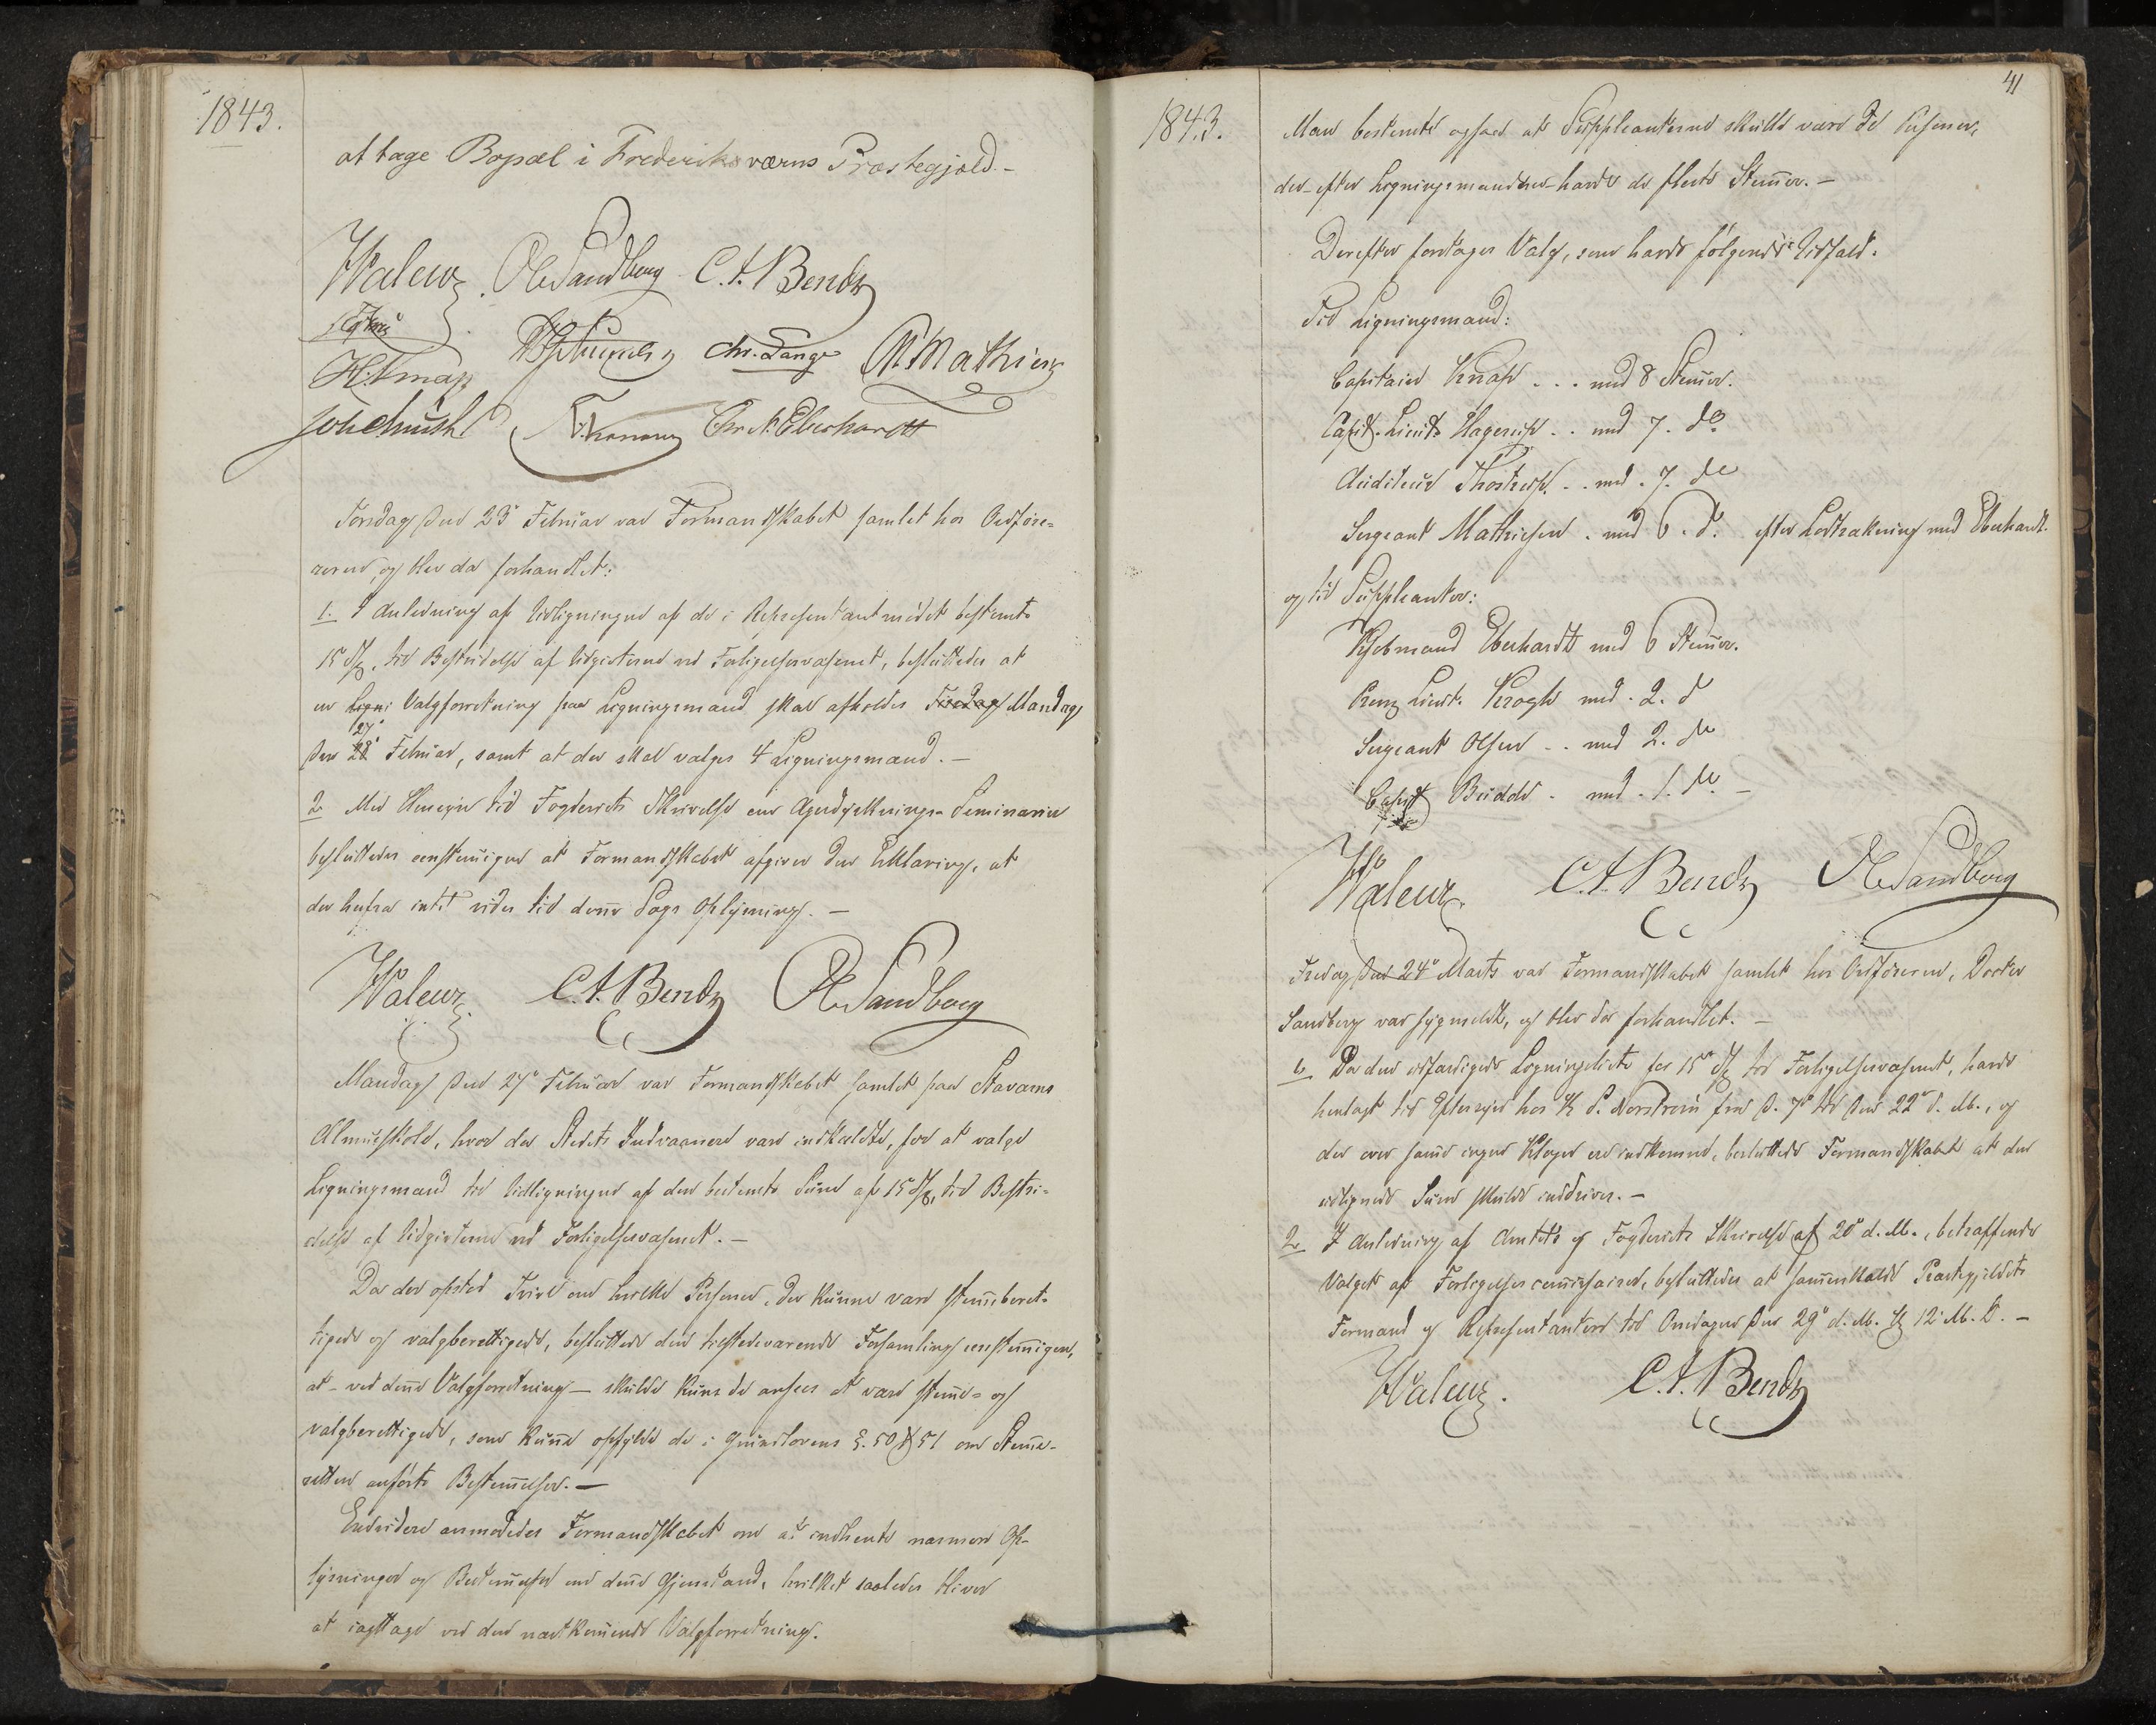 1843.
at tage Bopæl i Frederiksværns Præstegjæld. -
Waleur. Ole Sandberg C. A. Bentz
H. Knap Chr. Lange M. Mathiesen
Chr. N. Eberhardt
Torsdag den 23de Februar var Formandskabet samlet hos Ordføre-
reren, og blev da forhandlet:
1. I Anledning af Udligningen af de i Repræsentantmødet bestemte
15 Spd, til Bestridelse af Udgifterne ved Forligelsesvæsenet, besluttedes at
en Valgforretning paa Ligningsmænd skal afholdes Tirsdag Mandag
27de
den 28 Februar, samt at der skal vælges 4 Ligningsmænd. -
2. Med Hensyn til Fogderiets Skrivelse om Agerdyrknings-Seminarier
besluttedes eenstemmigen at Formandskabet afgiver den Erklæring, at
der herfra intet vides til denne Sags Oplysning. -
Waleur. C. A. Bentz Ole Sandberg
Mandag den 27de Februar var Formandskabet samlet paa Staværns
Almueskole, hvor da Stedets Indvaanere vare indkaldte, for at vælge
Ligningsmænd til Udligningen af den bestemte Sum af 15 Spd, til Bestri-
delse af Udgifterne ved Forligelsesvæsenet. -
Da der opstod Tvivl om hvilke Personer, der kunne være stemmeberet-
tigede og valgberettigede, besluttede den tilstedeværende Forsamling eenstemmigen,
at - ved denne Valgforretning - skulde kuns de ansees at være stemme- og
valgberettigede, som kunne opfylde de i Grundlovens §. 50 & 51 om Stemme-
retten anførte Bestemmelser. -
Endvidere anmodedes Formandskabet om at indhente nærmere Op-
lysninger og Bestemmelser om denne Gjenstand, hvilket saaledes bliver
at iagttage ved den næstkommende Valgforretning.
41
1843.
Man bestemte ogsaa at Suppleanterne skulde være de Personer,
der - efter Ligningsmændene - havde de fleste Stemmer. -
Derefter foretoges Valg, som havde følgende Udfald.
Til Ligningsmænd:
Capitain Knap ... med 8 Stemmer.
Capit. Lieut. Hagerup .. med 7. do
Auditeur Thostrup. .. med . 7. do
Sergeant Mathiesen . med 6 . do. efter Lodtrækning med Eberhardt.
og til Suppleanter:
Kjøbmand Eberhardt med 6 Stemmer.
Prem. Lieut. Krogh med . 2. do
Sergeant Olsen .. med 2. do
Capit Budde . med . 1. do. -
Waleur. C. A. Bentz Ole Sandberg
Fredag den 24de Marts var Formandskabet samlet hos Ordføreren, Doctor
Sandberg var sygmeldt, og blev da forhandlet. -
1. Da den udfærdigede Ligningsliste for 15 Spd til Forligelsesvæsenet, havde
henlagt til Eftersyn hos Hr S. Norstrøm fra d. 7de til den 22de d. M., og
der over samme ingen Klager ere indkomne, besluttede Formandskabet at den
udlignede Sum skulde inddrives. -
2. I Anledning af Amtets og Fogderiets Skrivelse af 20de d. M., betræffende
Valget af Forligelsescommissairer, besluttedes at sammenkalde Præstegjeldets
Formænd og Repræsentanter til Onsdagen den 29de d. M. Kl 12 M. D. -
Waleur. C. A. Bentz